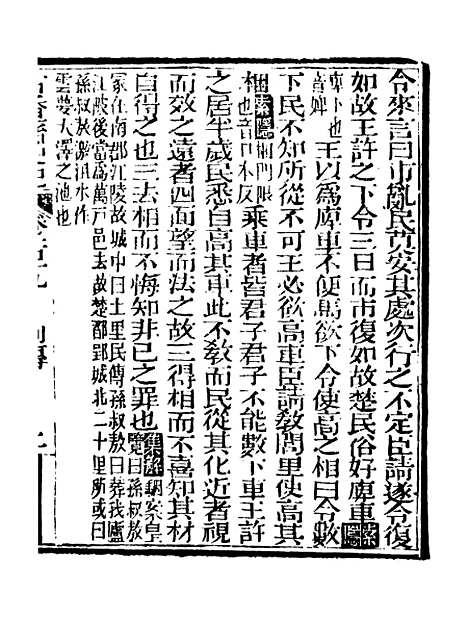 令來言曰市亂民莫安其處次行之不定臣請遂令復
如故王許之下令三日而市復如故楚民俗好庳車索隱
庳下也
音婢
王以爲庳車不便馬欲下令使高之相曰令數
下民不知所從不可王必欲高車臣請敎閭里使高其
梱索隱
梱門限
也音口本反
乘車者皆君子君子不能數下車王許
之居半歲民悉自高其車此不敎而民從其化近者視
而效之遠者四面望而法之故三得相而不喜知其材
自得之也三去相而不悔知非已之罪也集解
駰案皇
覽曰孫叔敖
冢在南郡江陵故城中白土里民傳孫叔敖曰葬我廬
江陂後當爲萬戶邑去故楚都郢城北二十里所或曰
孫叔敖激沮水作
雲夢大澤之池也